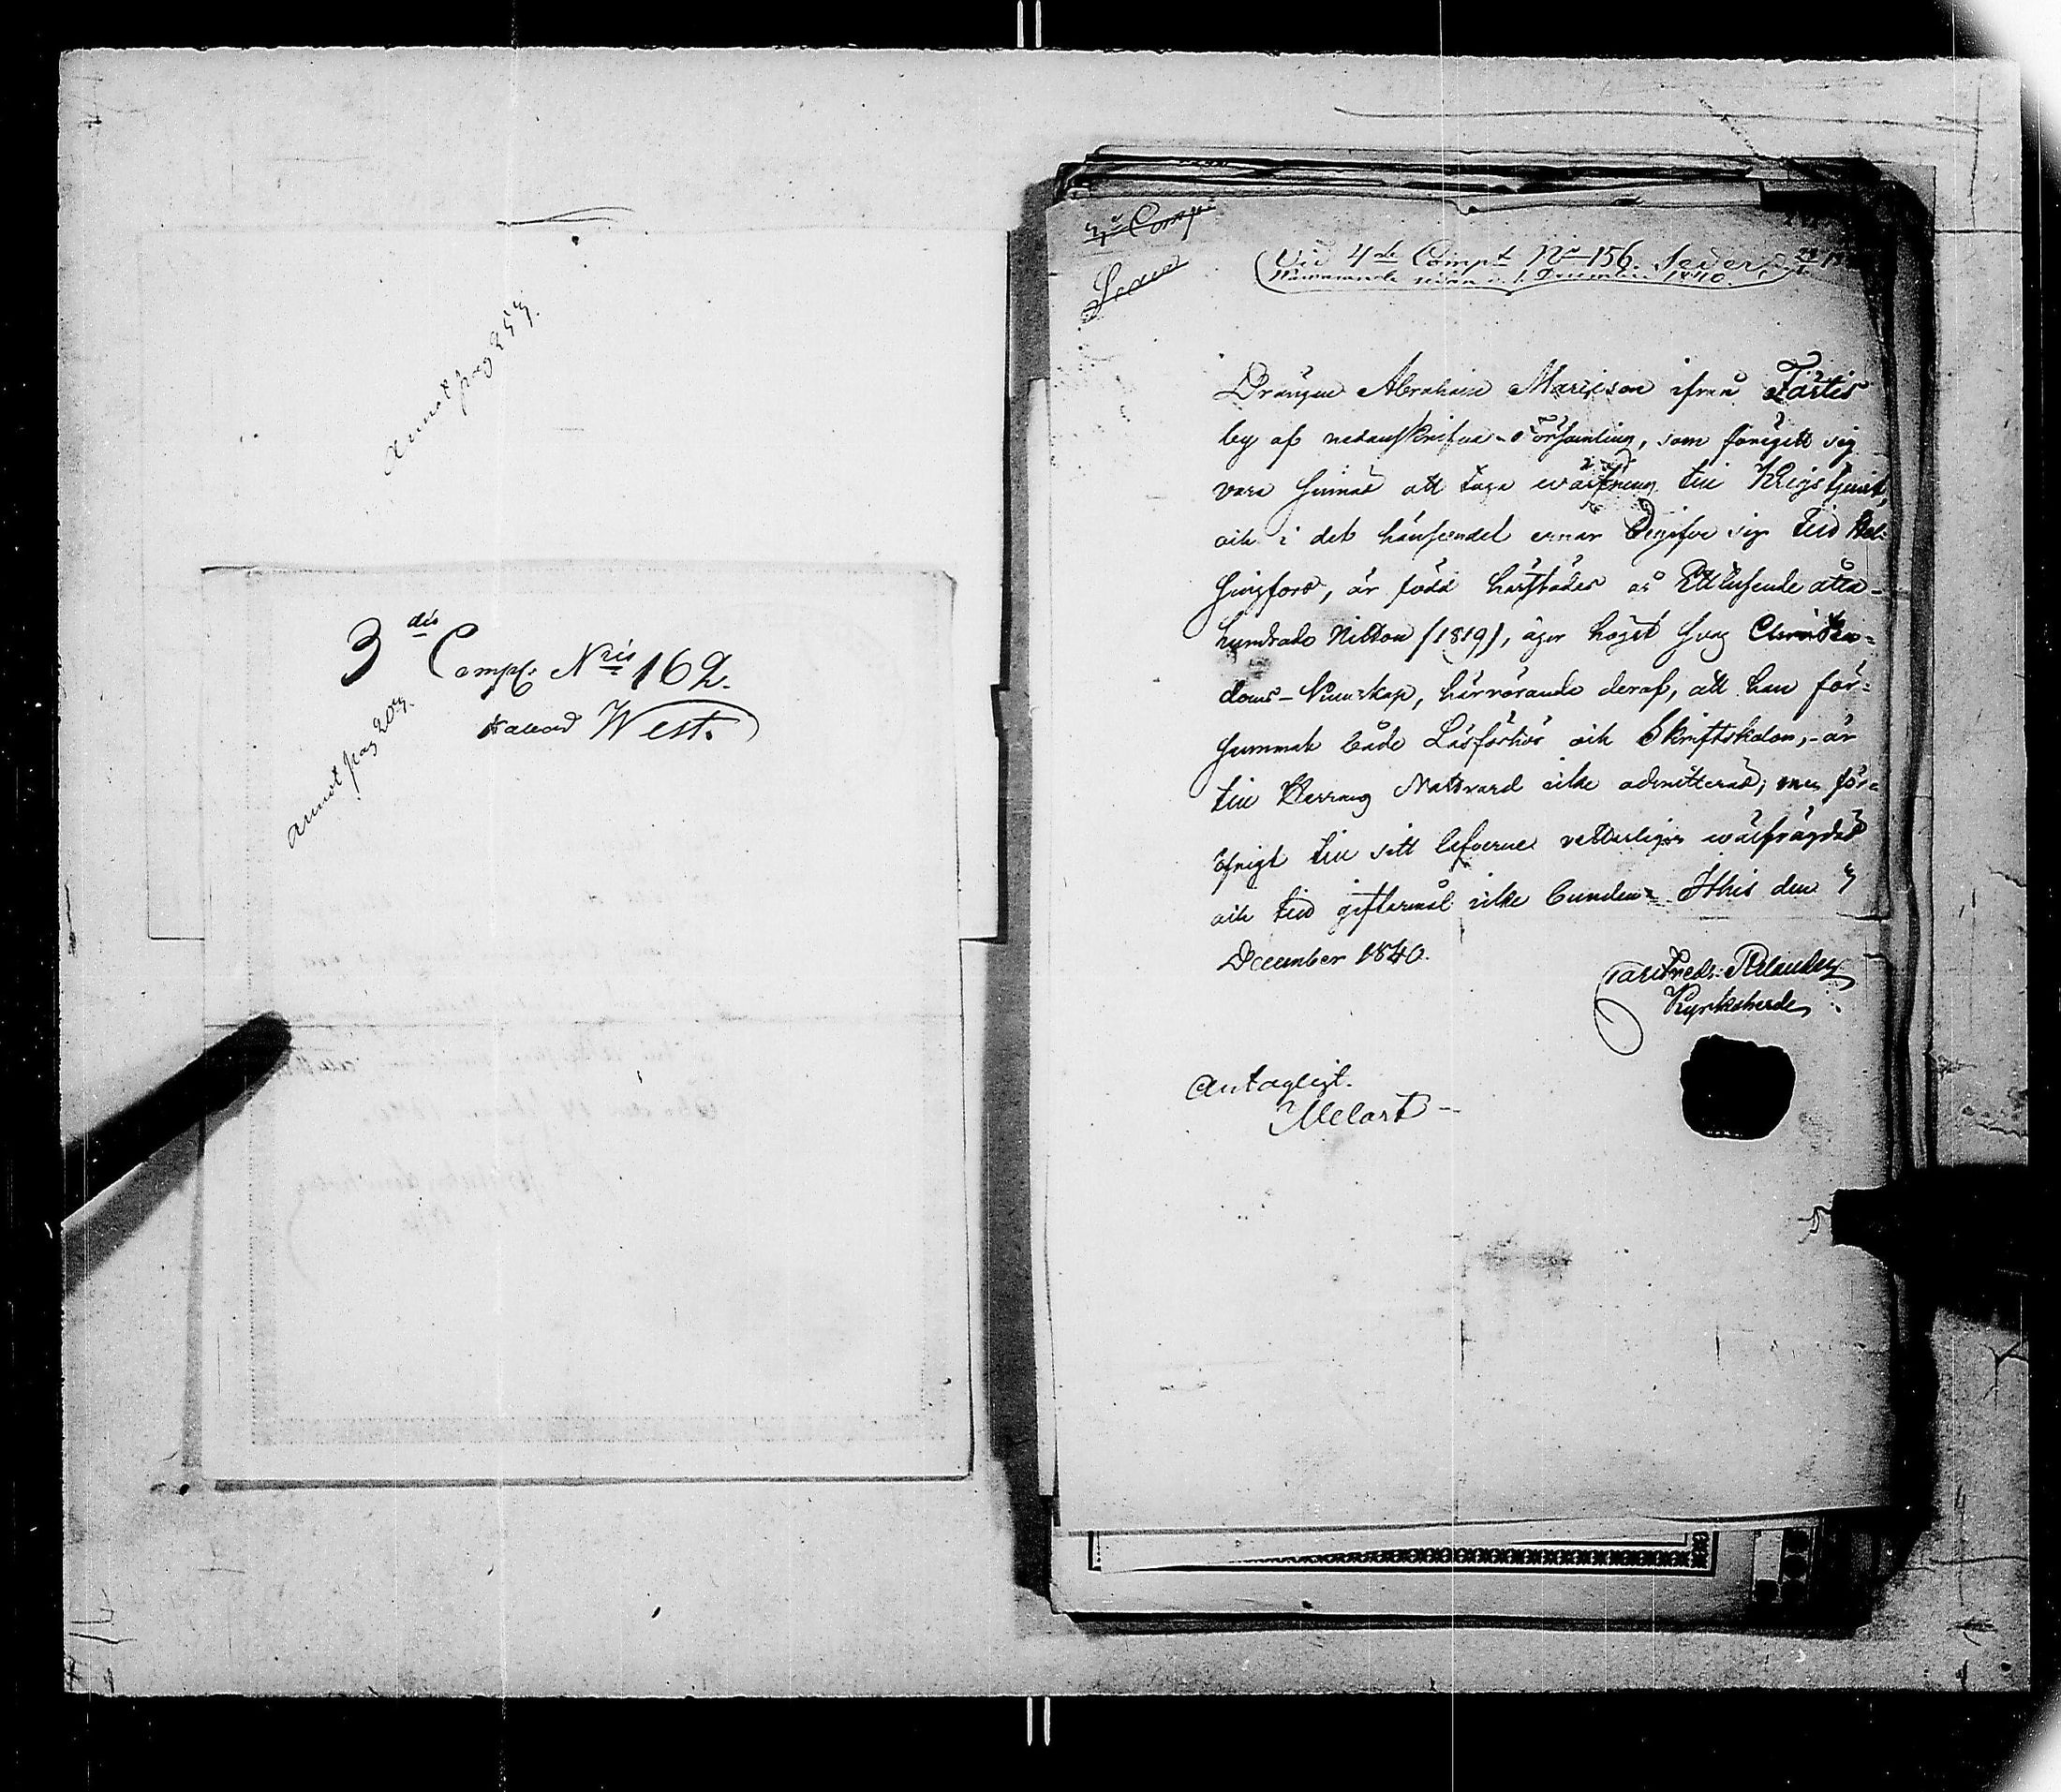 annot pag 257.
3 dis Comp. Nris 162.
kallad West.
annot pag 207.
Comp
Vid 4de Comp. No 156. Seder
Närvarande sedan d. 1. December 1840.
Drängen Abraham Mariæson ifrån Tårtis
by af nedanskrifne Församling, som föregett sig
vara sinnad att taga wärfning till Krigstjenst,
och i det hänseendet ernar begifva sig till Hel-
singfors, är född härstädes år Ett tusende åtta-
hundrade Nitton (1819), äger högst svag Christen-
doms-Kunskap, härrörande deraf, att han för-
summat både Läsförhör och Skriftskolan, är
till Herrans Nattvard icke admitterad; men för-
öfrigt till sitt lefverne vetterligen wälfrägdad
och till giftermål icke bunden. Ithis den 7
December 1840.
Carl Fredr. Relander
Kyrkoherde
Antagligt.
Melart